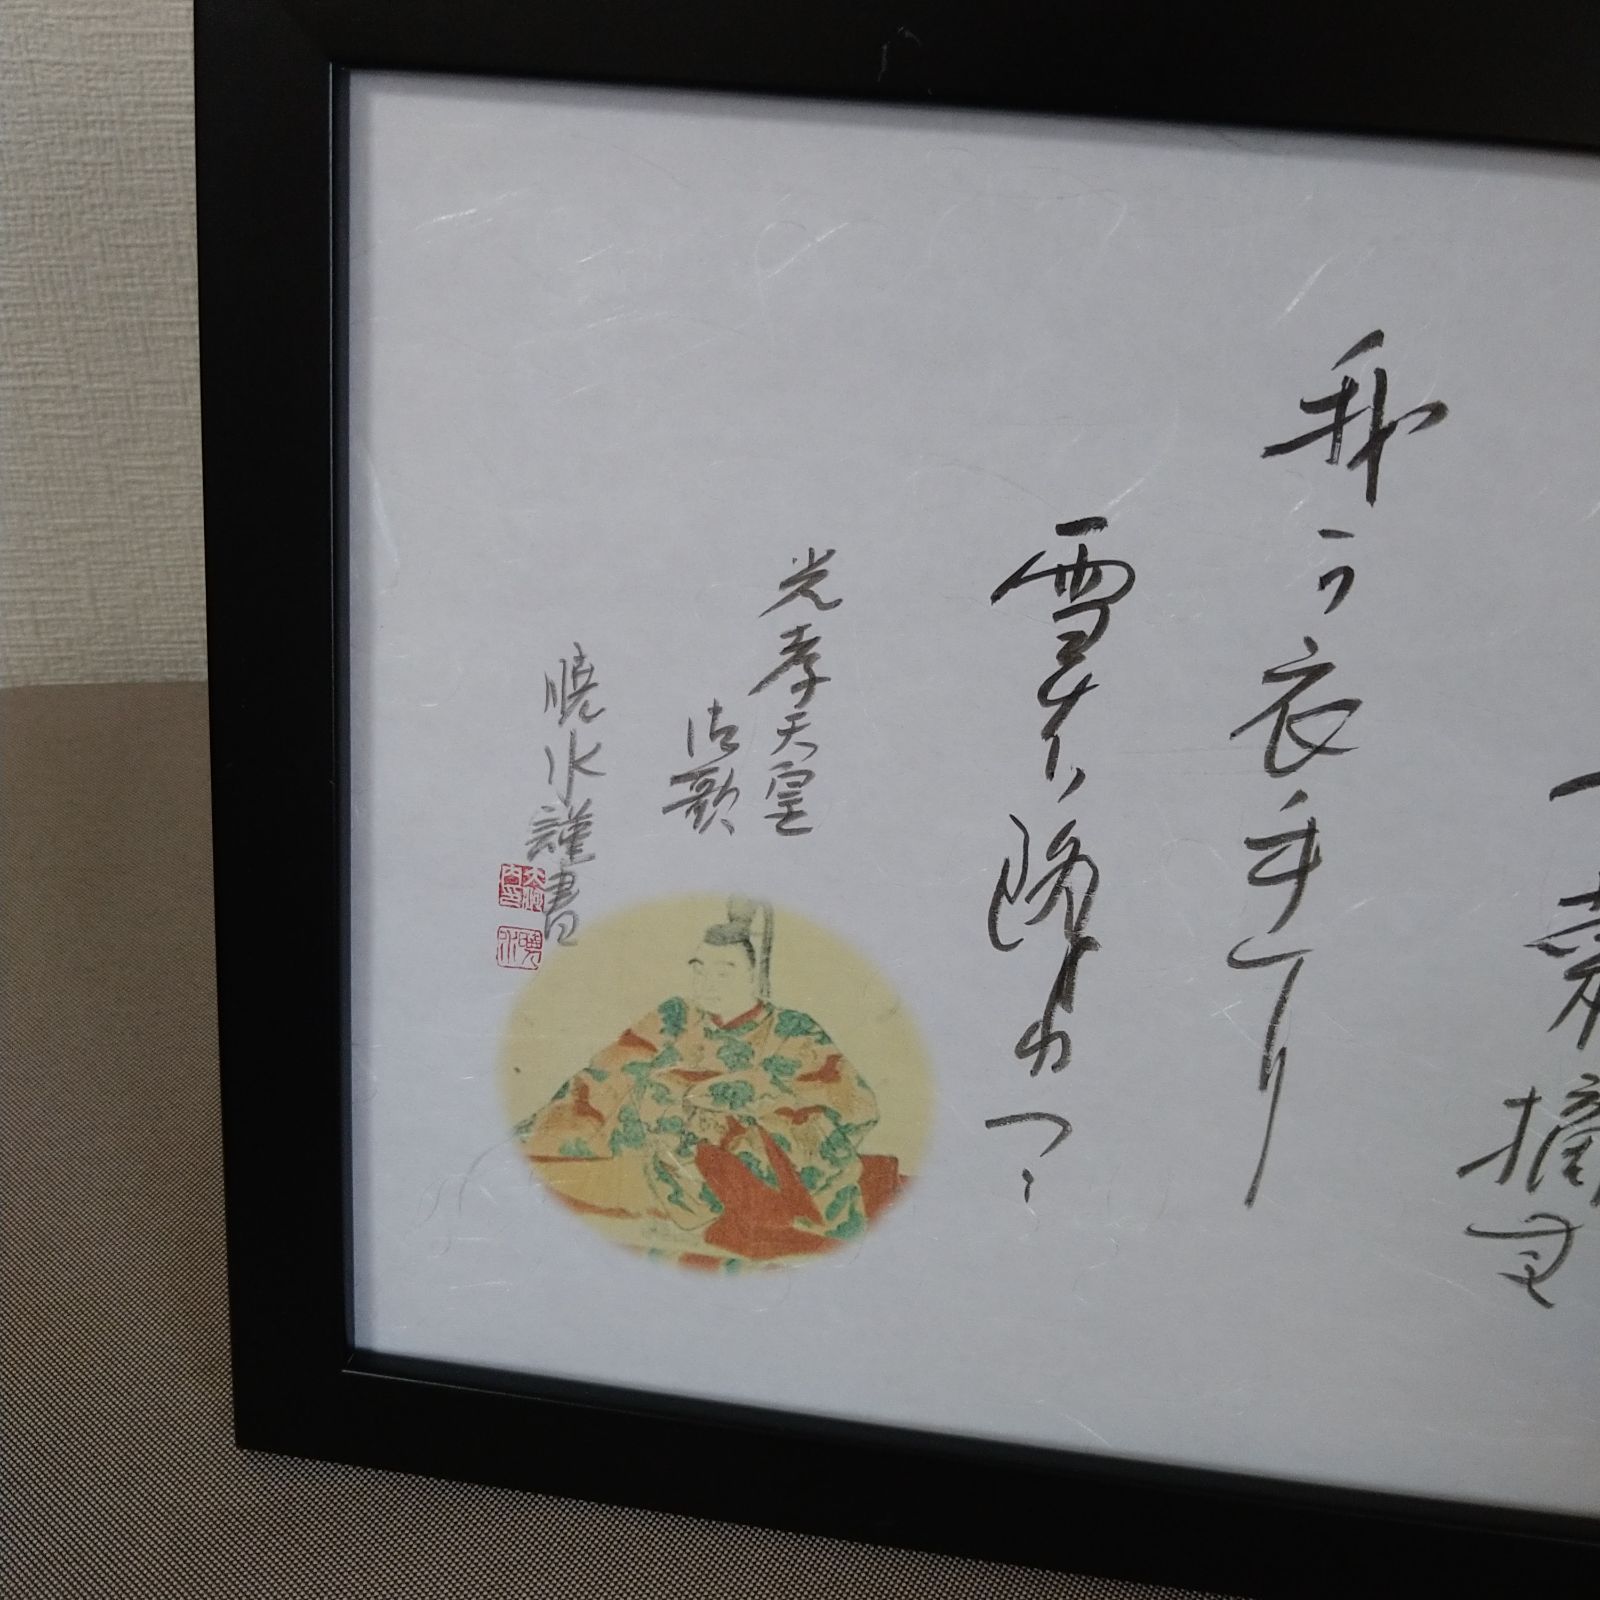 若菜摘む
我が衣手に
雪は降りつつ
光孝天皇
御歌
暁水謹書